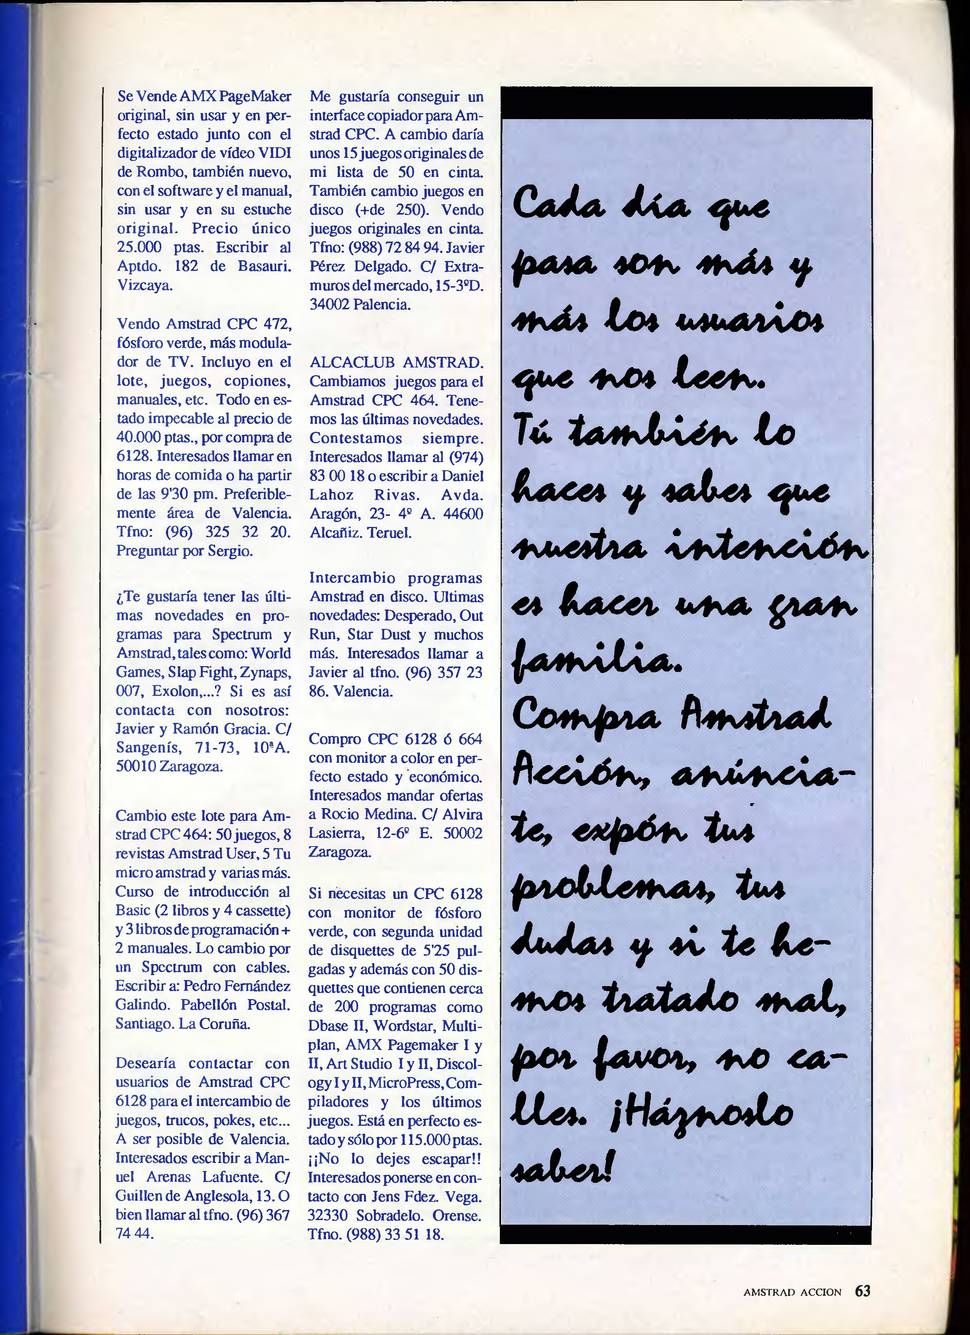 Se Vende AMX PageMaker
original, sin usar y en per-
fecto estado junto con el
digitalizador de vídeo VIDI
de Rombo, también nuevo,
con el software y el manual,
sin usar y en su estuche
original. Precio único
25.000 ptas. Escribir al
Aptdo. 182 de Basauri.
Vizcaya.
Vendo Amstrad CPC 472,
fósforo verde, más modula-
dor de TV. Incluyo en el
lote, juegos, copiones,
manuales, etc. Todo en es-
tado impecable al precio de
40.000 ptas., por compra de
6128. Interesados llamar en
horas de comida o ha partir
de las 9'30 pm. Preferible-
mente área de Valencia.
Tfno: (96) 325 32 20.
Preguntar por Sergio.
¿Te gustaría tener las últi-
mas novedades en pro-
gramas para Spectrum y
Amstrad, tales como: World
Games, Slap Fight, Zynaps,
007, Exolon,...? Si es así
contacta con nosotros:
Javier y Ramón Gracia. C/
Sangenís, 71-73, 10ªA.
50010 Zaragoza.
Cambio este lote para Am-
strad CPC 464: 50 juegos, 8
revistas Amstrad User, 5 Tu
micro amstrad y varias más.
Curso de introducción al
Basic (2 libros y 4 cassette)
y 3 libros de programación +
2 manuales. Lo cambio por
un Spectrum con cables.
Escribir a: Pedro Fernández
Galindo. Pabellón Postal.
Santiago. La Coruña.
Desearía contactar con
usuarios de Amstrad CPC
6128 para el intercambio de
juegos, trucos, pokes, etc...
A ser posible de Valencia.
Interesados escribir a Man-
uel Arenas Lafuente. C/
Guillen de Anglesola, 13. O
bien llamar al tfno. (96) 367
74 44.
Me gustaría conseguir un
interface copiador para Am-
strad CPC. A cambio daría
unos 15 juegos originales de
mi lista de 50 en cinta.
También cambio juegos en
disco (+de 250). Vendo
juegos originales en cinta.
Tfno: (988) 72 84 94. Javier
Pérez Delgado. C/ Extra-
muros del mercado, 15-3ºD.
34002 Palencia.
ALCACLUB AMSTRAD.
Cambiamos juegos para el
Amstrad CPC 464. Tene-
mos las últimas novedades.
Contestamos siempre.
Interesados llamar al (974)
83 00 18 o escribir a Daniel
Lahoz Rivas. Avda.
Aragón, 23- 4º A. 44600
Alcañiz. Teruel.
Intercambio programas
Amstrad en disco. Ultimas
novedades: Desperado, Out
Run, Star Dust y muchos
más. Interesados llamar a
Javier al tfno. (96) 357 23
86. Valencia.
Compro CPC 6128 ó 664
con monitor a color en per-
fecto estado y económico.
Interesados mandar ofertas
a Rocio Medina. C/ Alvira
Lasierra, 12-6º E. 50002
Zaragoza.
Si necesitas un CPC 6128
con monitor de fósforo
verde, con segunda unidad
de disquettes de 5'25 pul-
gadas y además con 50 dis-
quettes que contienen cerca
de 200 programas como
Dbase II, Wordstar, Multi-
plan, AMX Pagemaker I y
II, Art Studio I y II, Discol-
ogy I y II, MicroPress, Com-
piladores y los últimos
juegos. Está en perfecto es-
tado y sólo por 115.000 ptas.
¡¡No lo dejes escapar!!
Interesados ponerse en con-
tacto con Jens Fdez. Vega.
32330 Sobradelo. Orense.
Tfno. (988) 33 51 18.
Cada día que
pasa son más y
más los usuarios
que nos leen.
Tú también lo
haces y sabes que
nuestra intención
es hacer una gran
familia.
Compra Amstrad
Acción, anúncia-
te, expón tus
problemas, tus
dudas y si te he-
mos tratado mal,
por favor, no ca-
lles. ¡Háznoslo
saber!
AMSTRAD ACCION 63